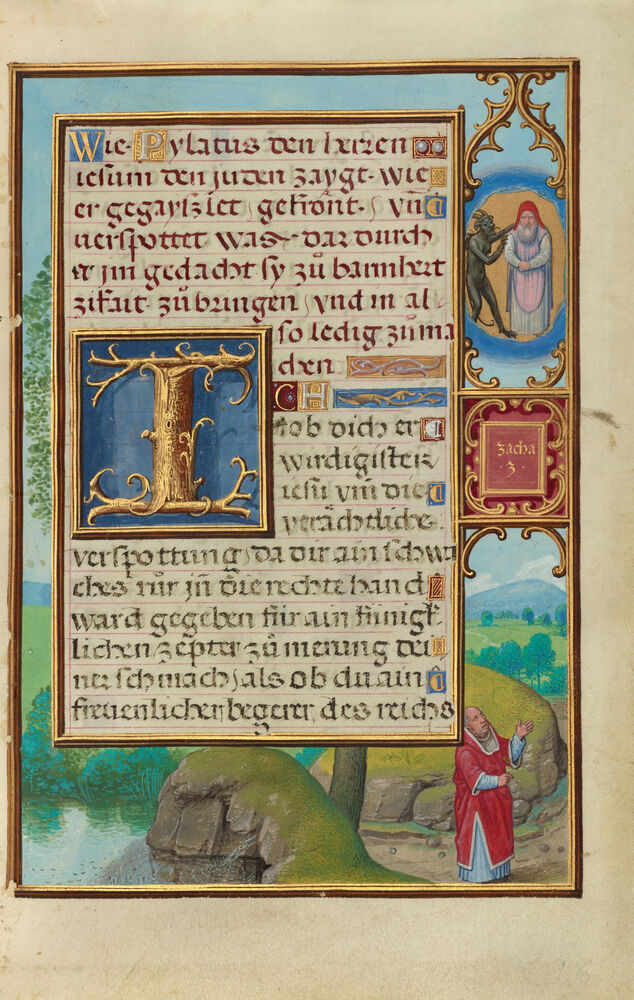 Wie Pylatus den herren
iesum den juden zaygt. wie
er gegayslet, gekrönt, vn̄
verspottet was dardurch
er jm gedacht sy zů barmhert
zikait zů bringen, vnd in al
so ledig zů ma
chen
ICH
lob dich er
wirdigister
iesu vm̄ die
verächtliche
verspottung, da dir ain schwa
ches růr jn die rechte hand
ward gegeben für ain künigk
lichen zepter zů merung dei
ner schmach, als ob du ain
freuenlicher begerer des reichs
zacha
.3.